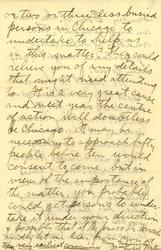 or two or three less busied
persons in Chicago to
undertake to help us
in this matter. They could
relieve you of any details
that might need attending
to. It is a very great care
and next year the center
of action will doubtless
be Chicago. It may be
necessary to approach fifty
people before ten would
consent to come but in
view of the importance of
the matter you probably
could get persons to under-
take it under your direction
possible that if the
your very earliest convenience